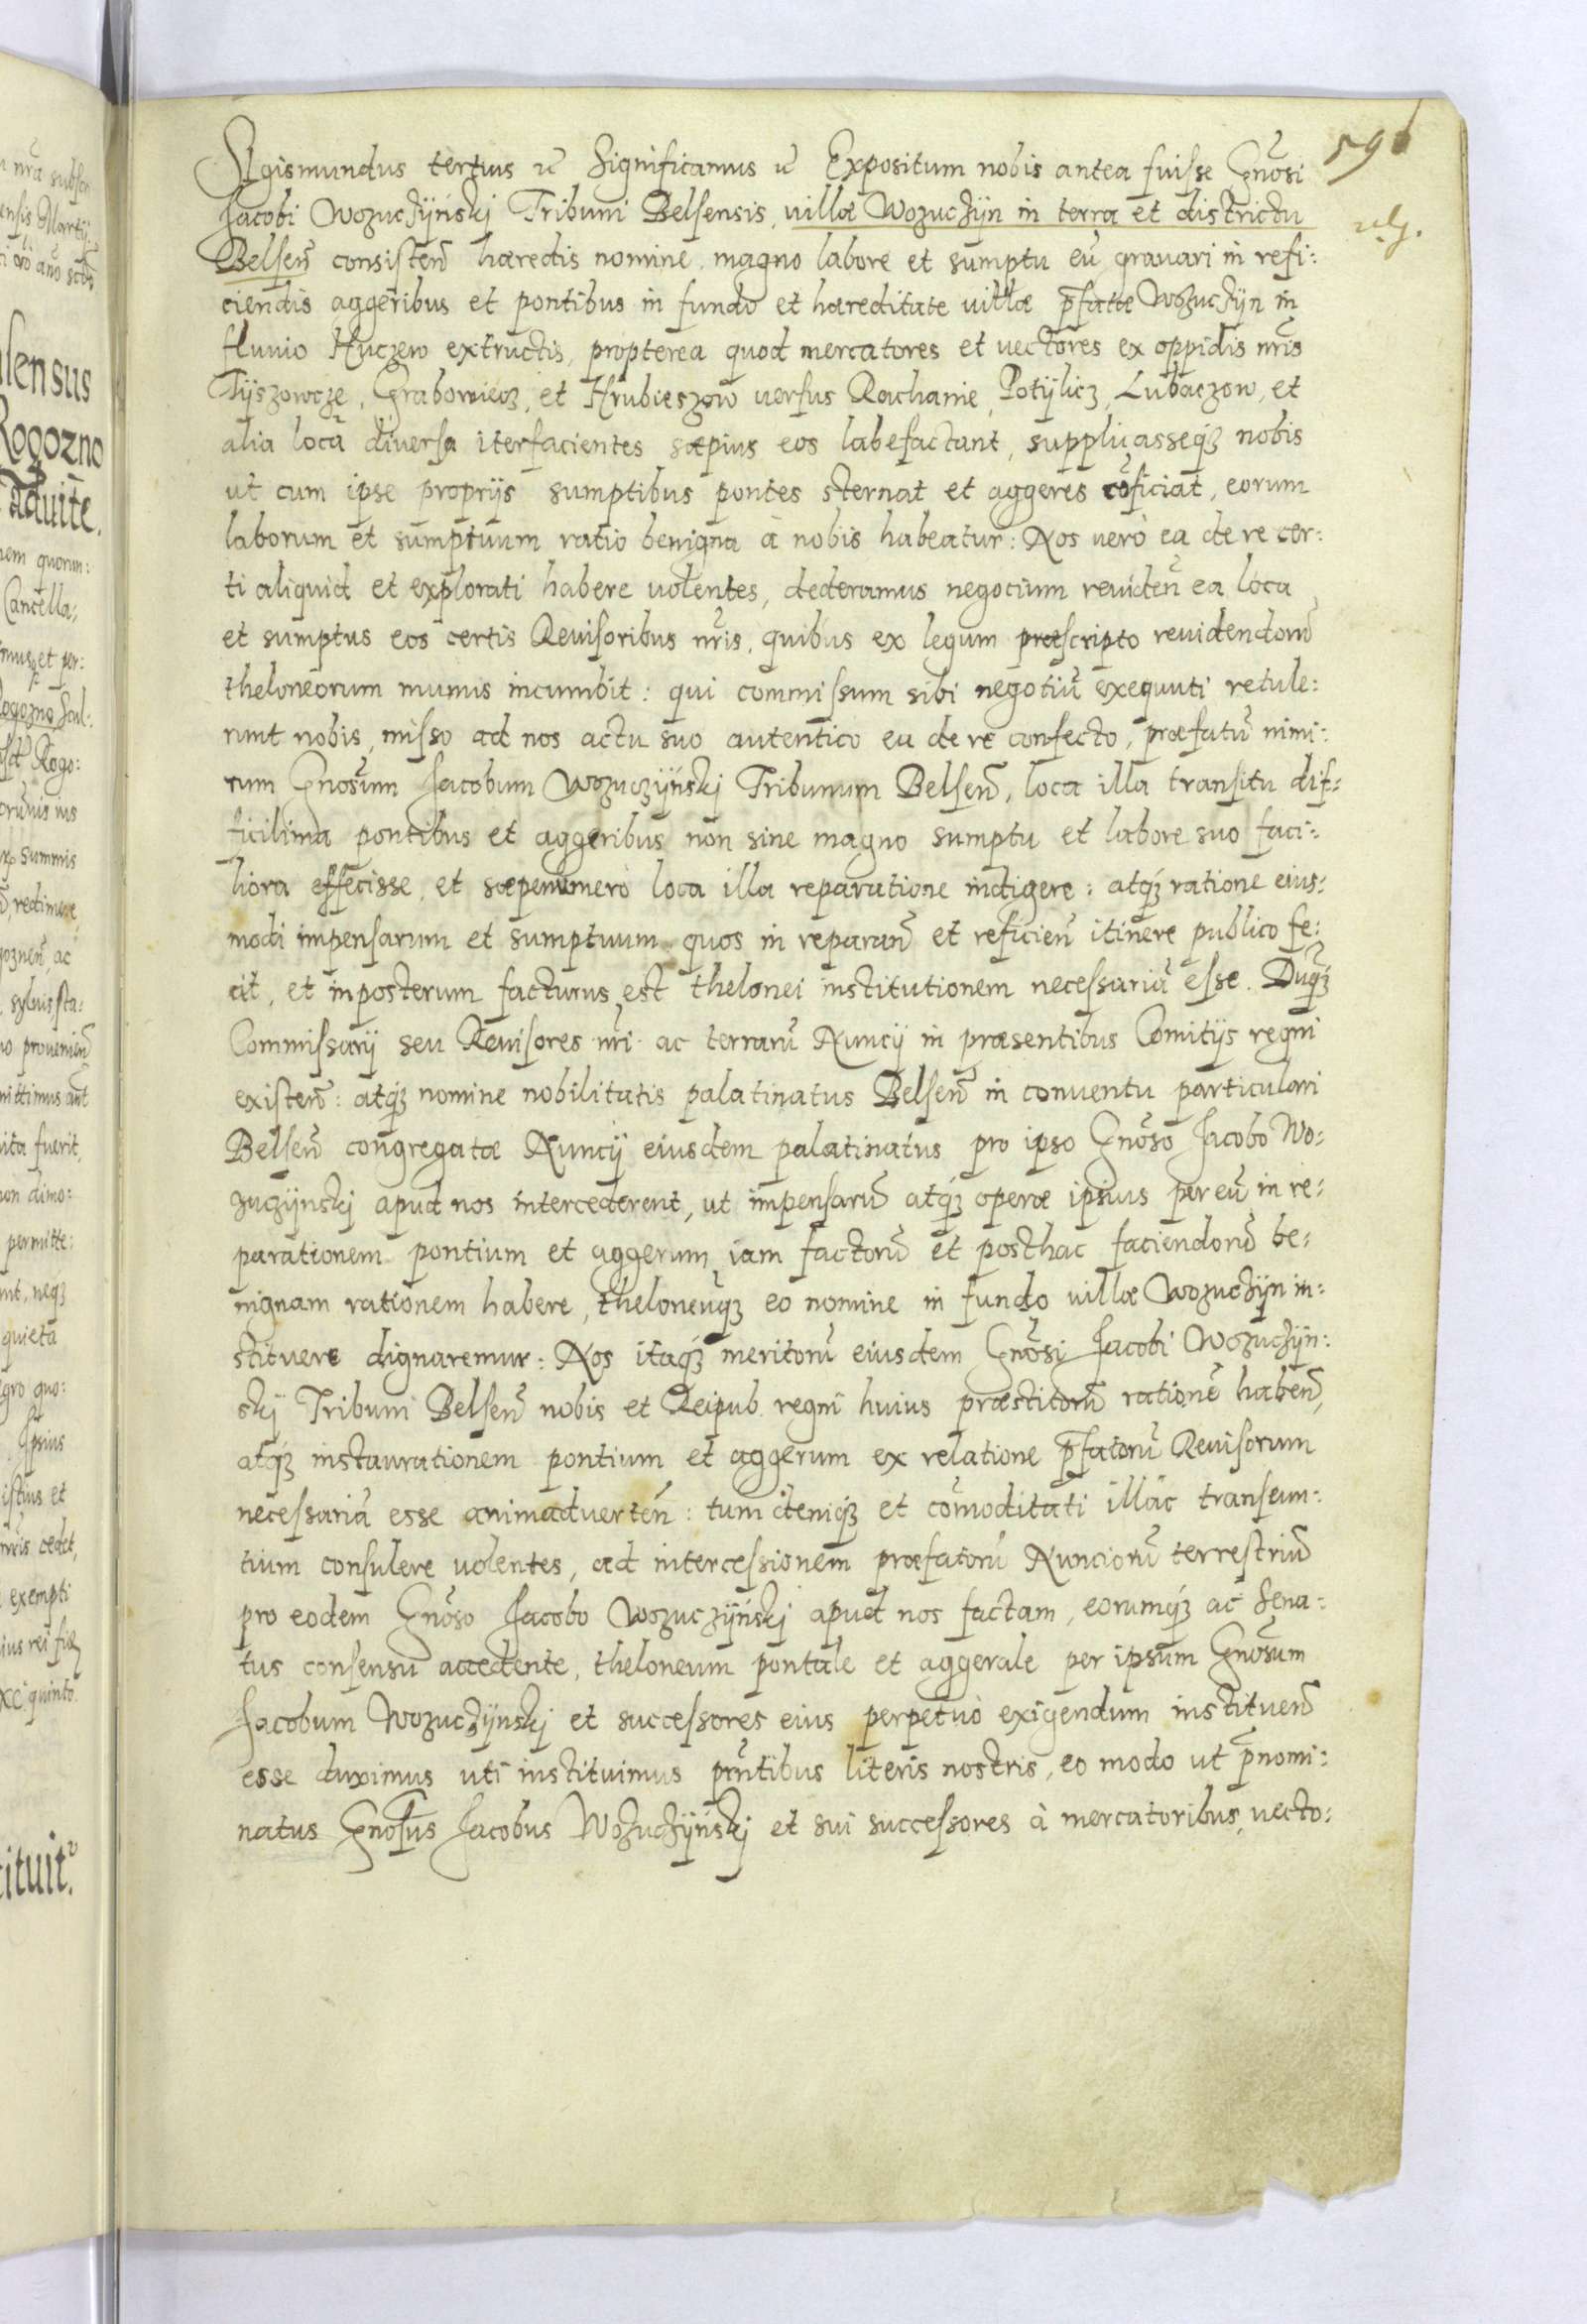 596
Sigismundus tertius etc Significamus etc Expositum nobis antea fuisse Gnõsi
Jacobi Wozuczÿnskj Tribuni Belsensis, villæ Wozuczÿn in terra et districtu
Belseñ consisteñ hæredis nomine magno labore et sumptu eũ grauari in refi:
ciendis aggeribus et pontibus in fundo et hæreditate villæ p̃fatæ Wozuczÿn in
fluuio Huczew extructis, propterea quod mercatores et uectores ex oppidis nr̃is
Tÿszowcze, Grabowiecz, et Hrubieszow uersus Rachanie, Potÿlicz, Lubaczow, et
alia loca diuersa iter facientes sæpius eos labefactant, supplicasseq́ nobis
ut cum ipse proprijs sumptibus pontes sternat et aggeres cõficiat, eorum
laborum et sumptuum ratio benigna à nobis habeatur: Nos uerò ea de re cer:
ti aliquid et explorati habere uolentes, dederamus negocium reuideñ ea loca
et sumptus eos certis Reuisoribus nr̃is, quibus ex legum præscripto reuidendorũ
theloneorum munus incumbit: qui commissum sibi negotiũ exequuti retule:
runt nobis, misso ad nos actu suo autentico ea de re confecto, præfatũ nimi:
rum Gnõsum Jacobum Wozuczÿńskj Tribunum Belseñ, loca illa transitu dif:
ficilima pontibus et aggeribus non sine magno sumptu et labore suo faci:
liora effecisse, et sæpenumerò loca illa reparatione indigere: atq́ ratione eius:
modi impensarum et sumptuum quos in reparañ et reficieñ itinere publico fe:
cit, et inposterum facturus est thelonei institutionem necessariã esse. Dũq́
Commissarij seu Reuisores nr̃i ac terrarũ Nuncij in præsentibus Comitijs regni
existeñ: atq́ nomine nobilitatis palatinatus Belseñ in conuentu particulari
Belseñ congregatæ Nuncij eiusdem palatinatus pro ipso Gnõso Jacobo Wo:
zuczÿnskj apud nos intercederent, ut impensarũ atq́ operæ ipsius per eũ in re:
parationem pontium et aggerum iam factorũ et posthac faciendorũ be:
nignam rationem habere, theloneũq́ eo nomine in fundo uillæ Wozuczÿn in:
stituere dignaremur: Nos itaq́ meritorũ eiusdem Gnõsi Jacobi Wozuczÿn:
skj Tribuni Belseñ nobis et Reipub. regni huius præstitorũ rationẽ habeñ,
atq́ instaurationem pontium et aggerum ex relatione p̃fatorũ Reuisorum
necessariã esse animaduerteñ: tum deniq́ et cõmoditati illac transeun:
tium consulere uolentes, ad intercessionem præfatorũ Nunciorũ terrestriũ
pro eodem Gnõso Jacobo Wozuczÿńskj apud nos factam, eorumq́ ac Sena:
tus consensu accedente, theloneum pontale et aggerale per ipsum Gnõsum
Jacobum Wozuczÿnskj et successores eius perpetuò exigendum institueñ
esse duximus uti instituimus pr̃ntibus literis nostris, eo modo ut p̃nomi:
natus Gnõsus Jacobus Wozuczÿńskj et sui successores à mercatoribus, uecto: